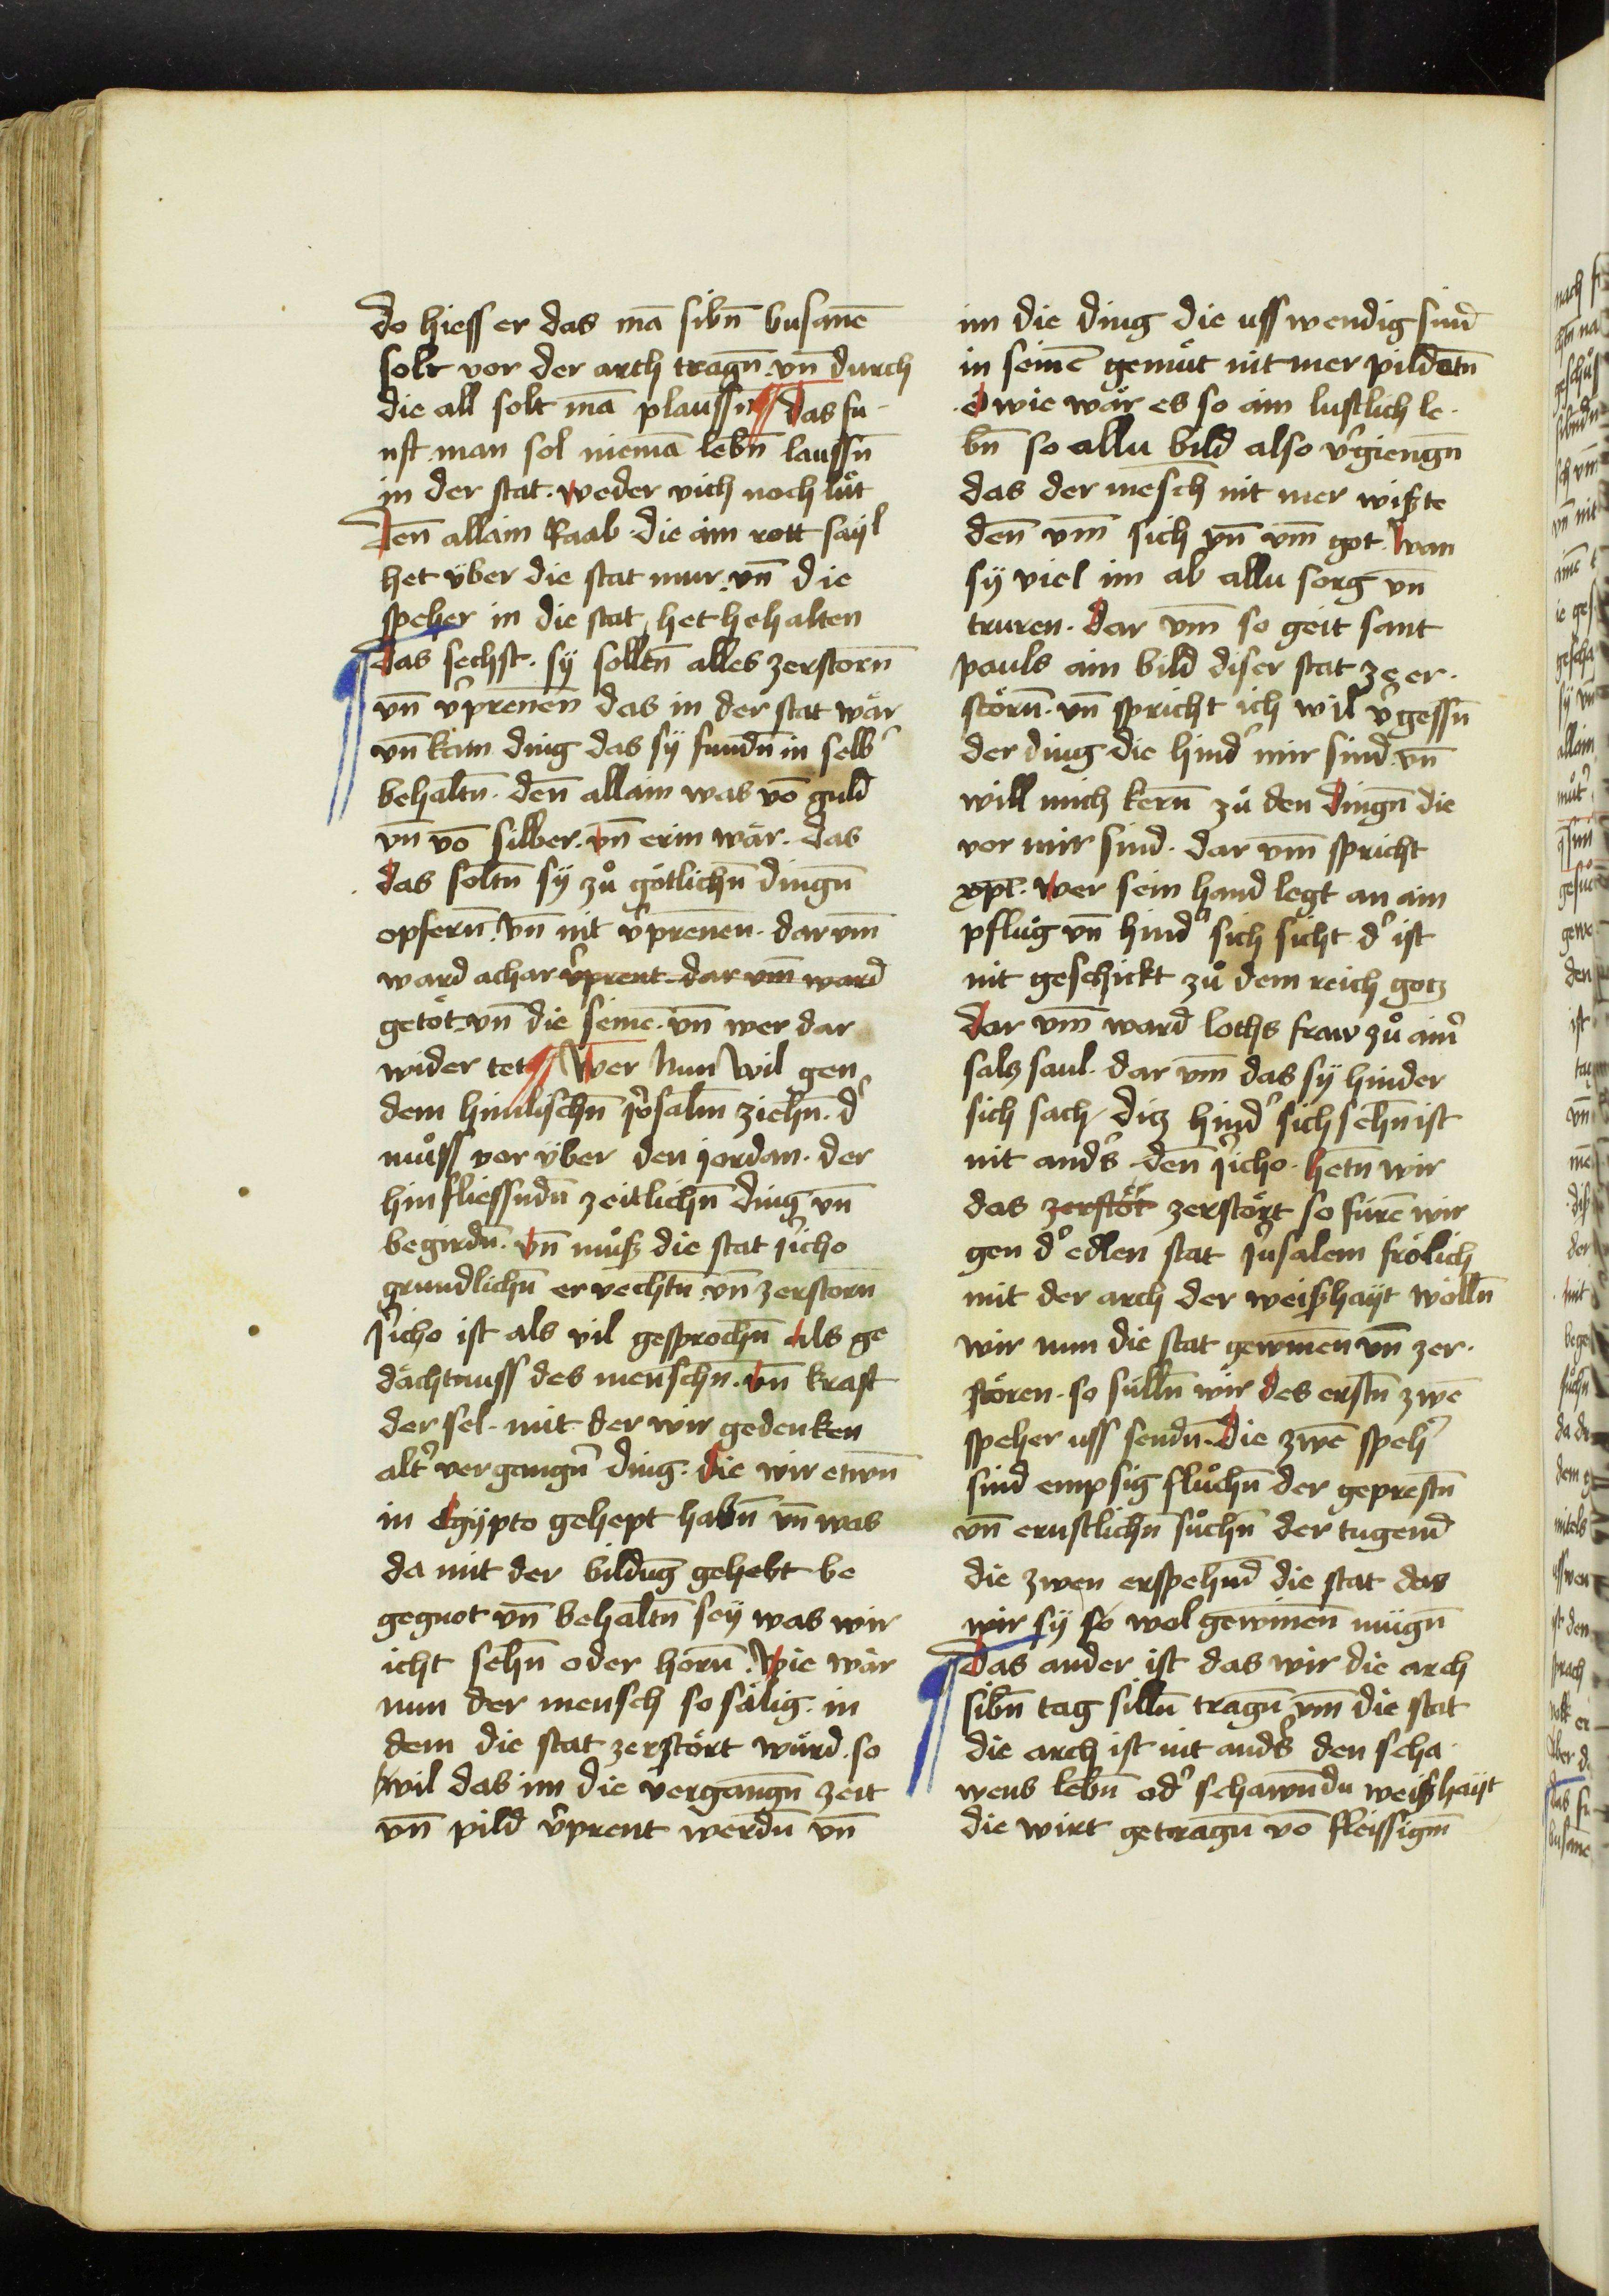 do hiess er das mā sibn̄ busanē
solt vor der arch tragn̄ . vn̄ durch
die all solt mā plaussn̄ ¶ das fu-
nft man sol niemā lebn̄ laussn̄
in der stat . weder vich noch lüt
Den̄ allain Raab . die ain rott sayl
het über die stat mur . vn̄ die
speher in die stat het behalten
¶ das sechst . sÿ solltn̄ alles zerstorn̄
vn̄ v̓prenen̄ das in der stat wär
vn̄ kain ding das sÿ fundn̄ in selb̓
behaltn̄ . den̄ allain was vō guld
vn̄ vō silber . vn̄ erin wär . das
das soltn̄ sÿ zů götlichn̄ dingn̄
opfern̄ . vn̄ nit v̓prenen̄ . dar vm̄
ward achar v̓prent dar vm̄ ward
getöt vn̄ die seinē . vn̄ wer dar
wider tet ¶ Wer Nun wil gen
dem himlischn̄ jr̓osalm̄ ziehn̄ . d̓
můss vor über den jordan . der
hin fliessndn̄ zeitlichn̄ ding vn̄
begirdn̄ . vn̄ můß die stat j̓icho
grundlichn̄ er vechtn̄ vn̄ zerstorn̄
J̓icho ist als vil gesprochn̄ als ge
dächtnuss des menschn̄ . vn̄ kraft
der sel . mit der wir gedenken
alt̓ vergangn̄ ding . die wir etwn̄
in egÿpto gehept habn̄ vn̄ was
da mit der bildūg gehebt be
gegnot vn̄ behaltn̄ seÿ was wir
icht sehn̄ oder horn̄ . Wie wär
nun der mensch so sälig . in
dem die stat zerstört würd . so
wil das im die vergangn̄ zeit
vn̄ pild v̓prent werdn̄ vn̄
im die ding die uss wendig sind
in seinē gemüt nit mer pildetn̄
. O wie wär es so ain lustlich le-
bn̄ so allu bild also v̓giengn̄
das der mēsch nit mer wißte
den̄ vm̄ sich vn̄ vm̄ got . wan
sÿ viel im ab allu sorg vn̄
truren . dar vm̄ so geit sant
pauls ain bild diser stat ze er-
störn̄ . vn̄ spricht ich wil v̓gessn̄
der ding die hind̓ mir sind . vn̄
will mich kern̄ zů den dingn̄ die
vor mir sind . dar vm̄ spricht
xp̄l . wer sein hand legt an ain
pflug vn̄ hind̓ sich sicht d̓ ist
nit geschickt zů dem reich gotz
dar vm̄ ward loths fraw zů ain̓
salz saul . dar vm̄ das sÿ hinder
sich sach / diz hind̓ sich sehn̄ ist
nit and̓s den̄ j̓icho . hetn̄ wir
das zerstöt zerstört so fürē wir
gen d̓ edlen stat j̓usalem frölich
mit der arch der weißhaÿt wölln̄
wir nun die stat gewinnen vn̄ zer-
stören . so sülln̄ wir des erstn̄ zwē
speher uss sendn̄ . die zwē speh̓
sind empsig flůchn̄ der geprestn̄
vn̄ ernstlichn̄ sůchn̄ der tugend
die zwen erspehnd die stat das
wir sÿ so wol gewinnen̄ mügn̄
¶ das ander ist das wir die arch
sibn̄ tag sülln̄ tragn̄ vm̄ die stat
die arch ist nit and̓s den scha-
wens lebn̄ od̓ schawndu weißhaÿt
die wirt getragn̄ vō fleissigm̄